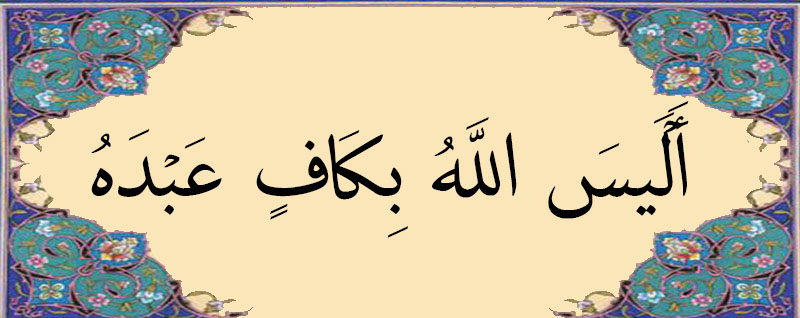 أَلَيسَ اللَّهُ بِكَافٍ عَبْدَهُ